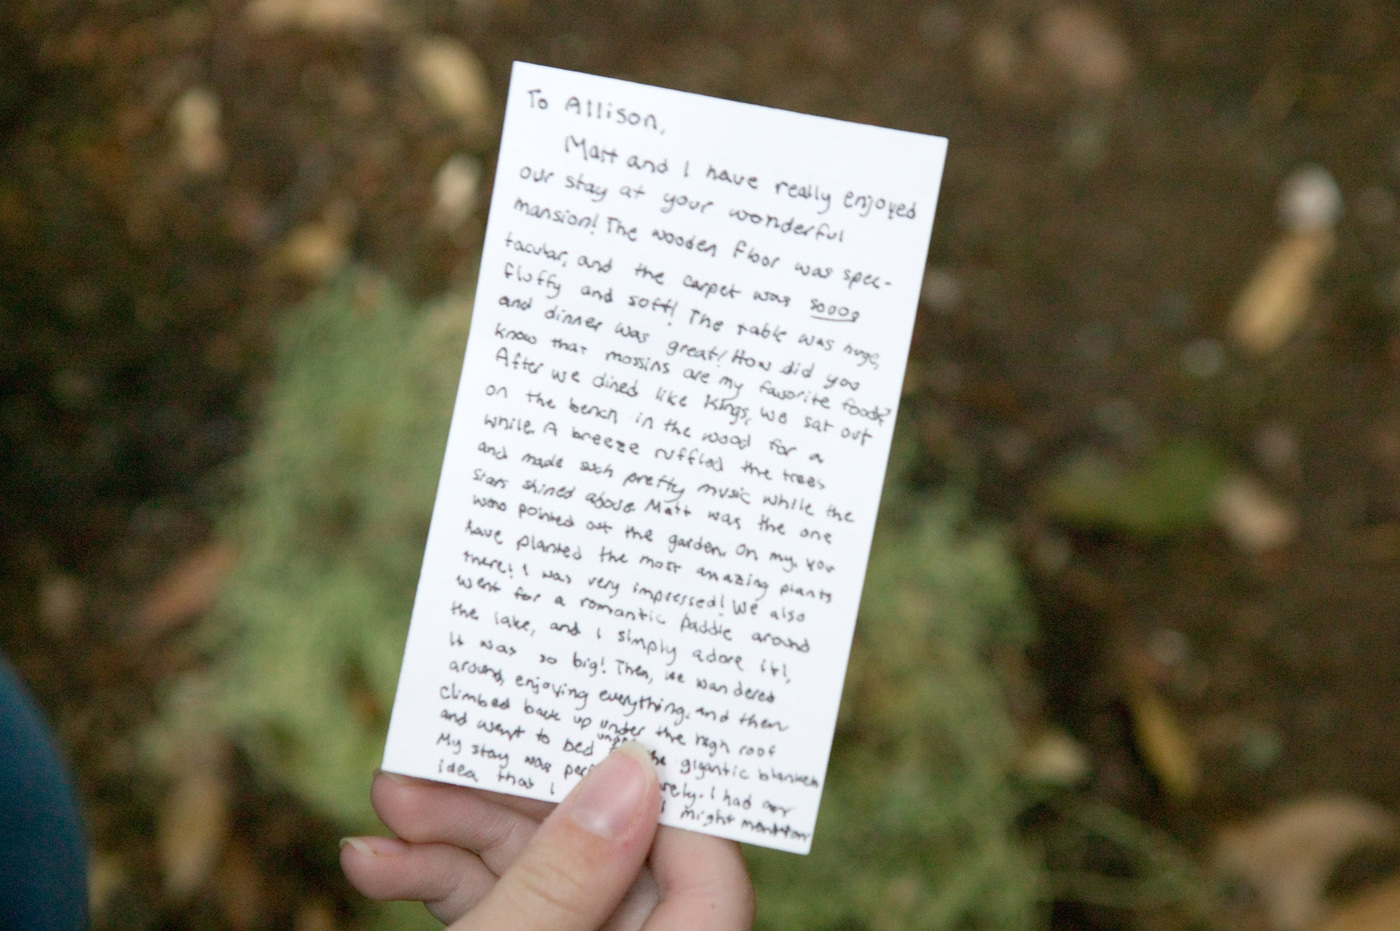 To Allison,
Matt and I have really enjoyed
our stay at your wonderful
mansion! The wooden floor was spec-
tacular, and the carpet was soooo
fluffy and soft! The table was huge,
and dinner was great! How did you
know that are my favorite food?
After we dined like kings, we sat out
on the bench in the wood for a
while. A breeze ruffled the trees
and made such pretty music while the
stars shined above. Matt was the one
who pointed out the garden. Oh my, you
have planted the most amazing plants
there! I was very impressed! We also
went for a romantic paddle around
the lake, and I simply adore it!
It was so big! Then, we wandered
around, enjoying everything, and then
climbed back up under the high roof
and went to bed under the gigantic blankets
My stay was I had an
idea that I I might mention